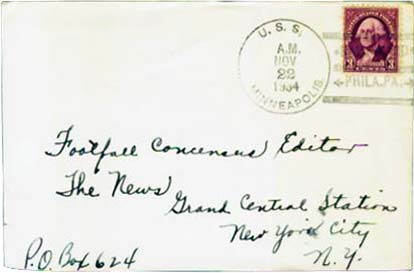 U. S. S.
A.M.
NOV
22
1934
MINNEAPOLIS
PHILA. PA.
3 CENTS 3
Footfall Concensus Editor
The News
Grand Central Station
New York City
P.O. Box 624
N.Y.